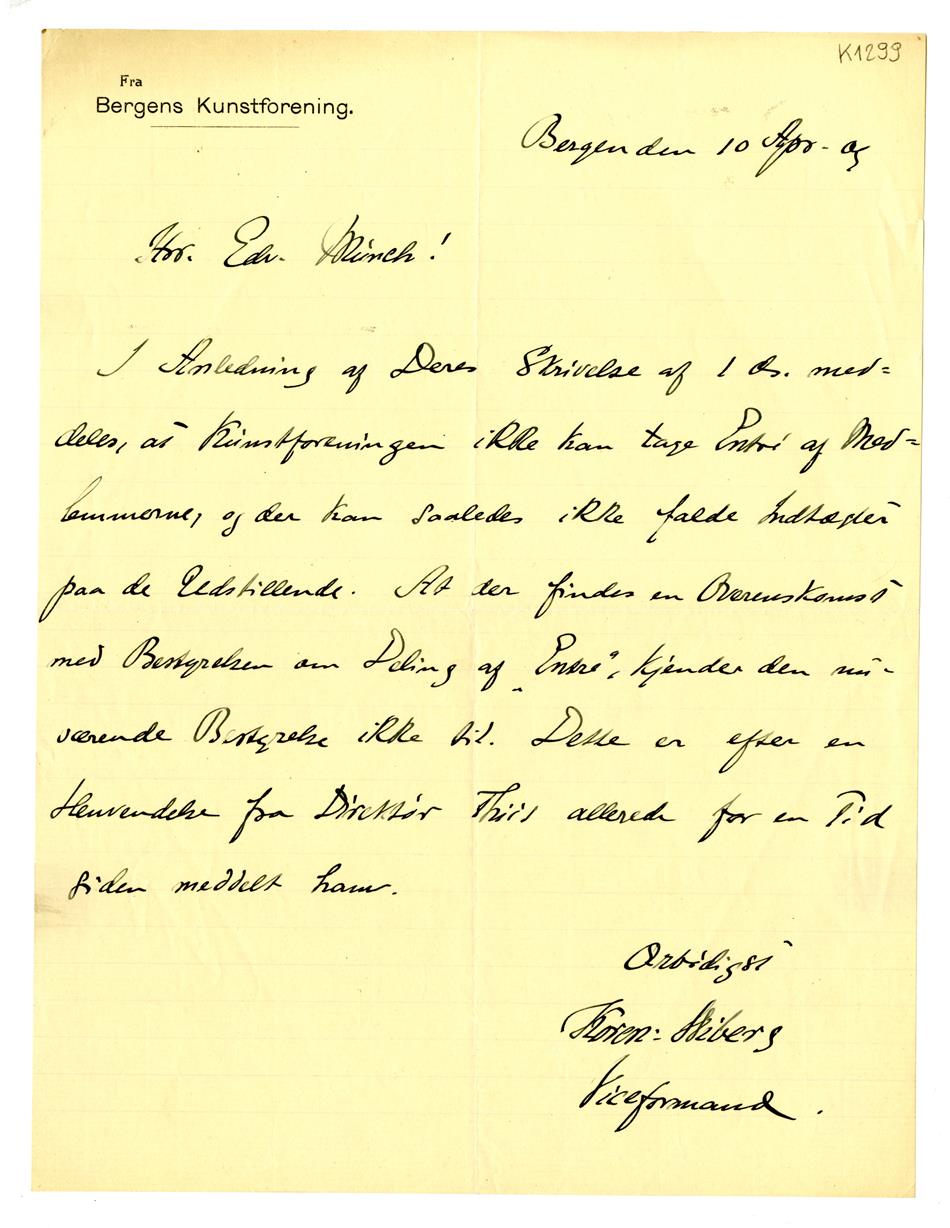 K1299
Fra
Bergens Kunstforening.
Bergen den 10 Apr- 09
Hrr. Edv. Münch!
I Anledning af Deres Skrivelse af 1 ds. med=
deles, at Kunstforeningen ikke kan tage Entré af Med=
lemmerne, og der kan saaledes ikke falde Indtægter
paa de Udstillende. At der findes en Overenskomst
med Bestyrelsen om Deling af „Entré“, kjender den nu-
værende Bestyrelse ikke til. Dette er efter en
Henvendelse fra Direktør Thiis allerede for en Tid
siden meddelt ham.
Ærbødigst
Koren-Wiberg
Viceformand.